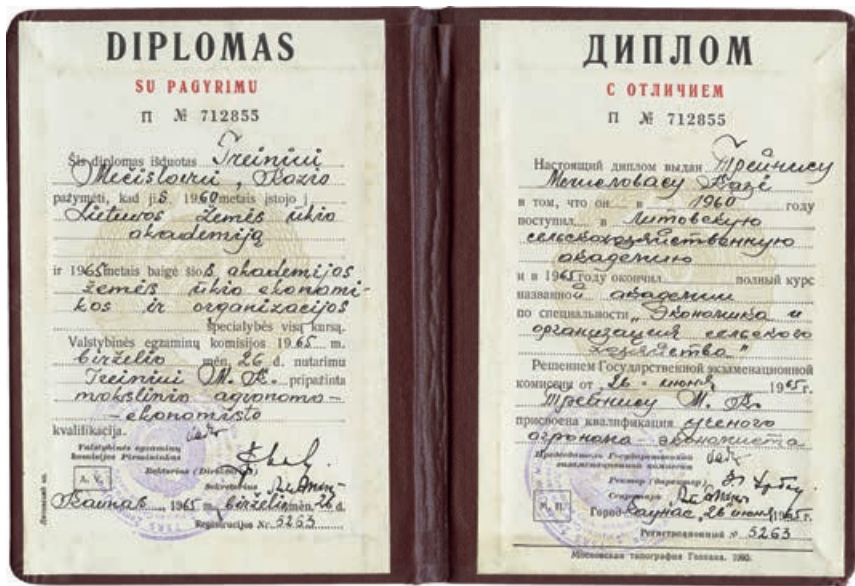 DIPLOMAS
SU PAGYRIMU
П № 712855
Šis diplomas išduotas Treiniui
Mečislovui, Kazio
pažymėti, kad jis 1960 metais įstojo į
Lietuvos žemės ūkio
akademiją
ir 1965 metais baigė šios akademijos
žemės ūkio ekonomi-
kos ir organizacijos
specialybės visą kursą.
Valstybinės egzaminų komisijos 1965 m.
birželio mėn. 26 d. nutarimu
Treiniui M. K. pripažinta
mokslinio agronomo-
-ekonomisto
kvalifikacija.
Valstybinės egzaminų
komisijos Pirmininkas
Rektorius (Direktorius)
Sekretorius
A. V.
Kaunas, 1965 m. birželio mėn. 26 d.
Registracijos Nr. 5263
ДИПЛОМ
С ОТЛИЧИЕМ
П № 712855
Настоящий диплом выдан Трейнису
Мечисловасу Казё
в том, что он в 1960 году
поступил в Литовскую
сельскохозяйственную
академию
и в 1965 году окончил полный курс
названной академии
по специальности „Экономика и
организация сельского
хозяйства"
Решением Государственной экзаменационной
комиссии от „26" июня 1965 г.
Трейнису М. К.
присвоена квалификация ученого
агронома-экономиста
Председатель Государственной
экзаменационной комиссии
Ректор (директор)
Секретарь
М. П.
Город Каунас, 26 июня 1965 г.
Регистрационный № 5263
Московская типография Гознака. 1960.